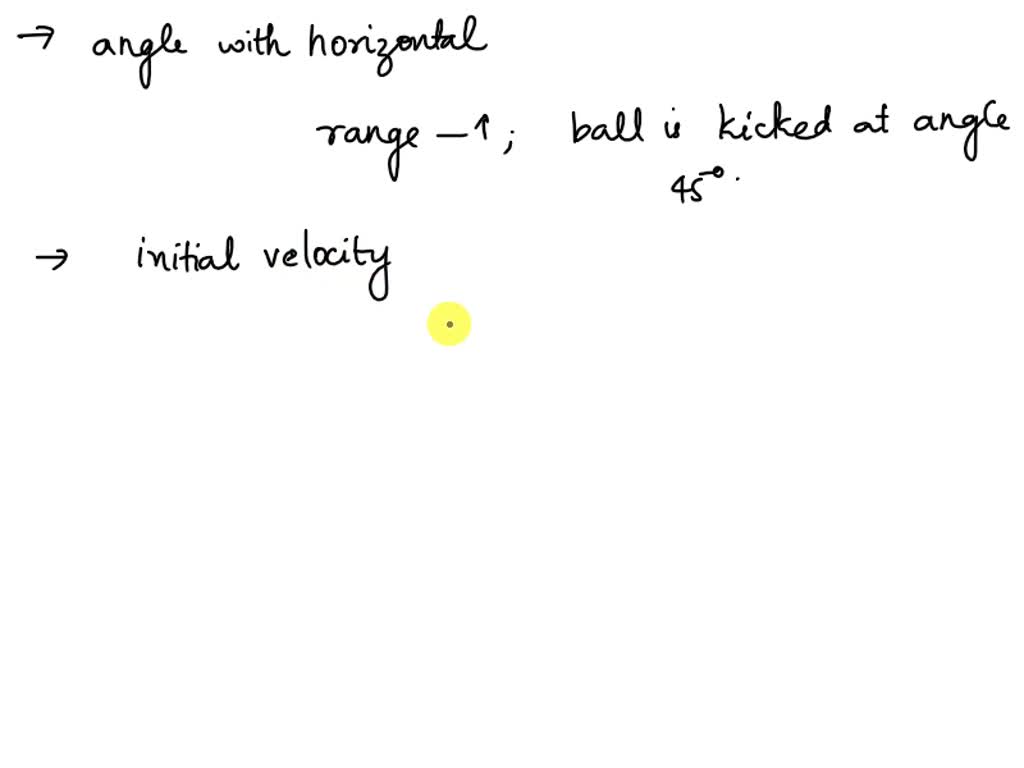 → angle with horizontal
range - ↑ ; ball is kicked at angle
45°.
→ initial velocity